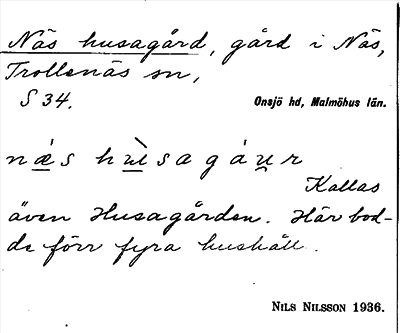 Näs husagård, gård i Näs,
Trollenäs sn,
S 34. Onsjö hd, Malmöhus län.
næ̀s hu̇̀sagåu̯r
Kallas
även Husagården. Här bod-
de förr fyra hushåll.
NILS NILSSON 1936.